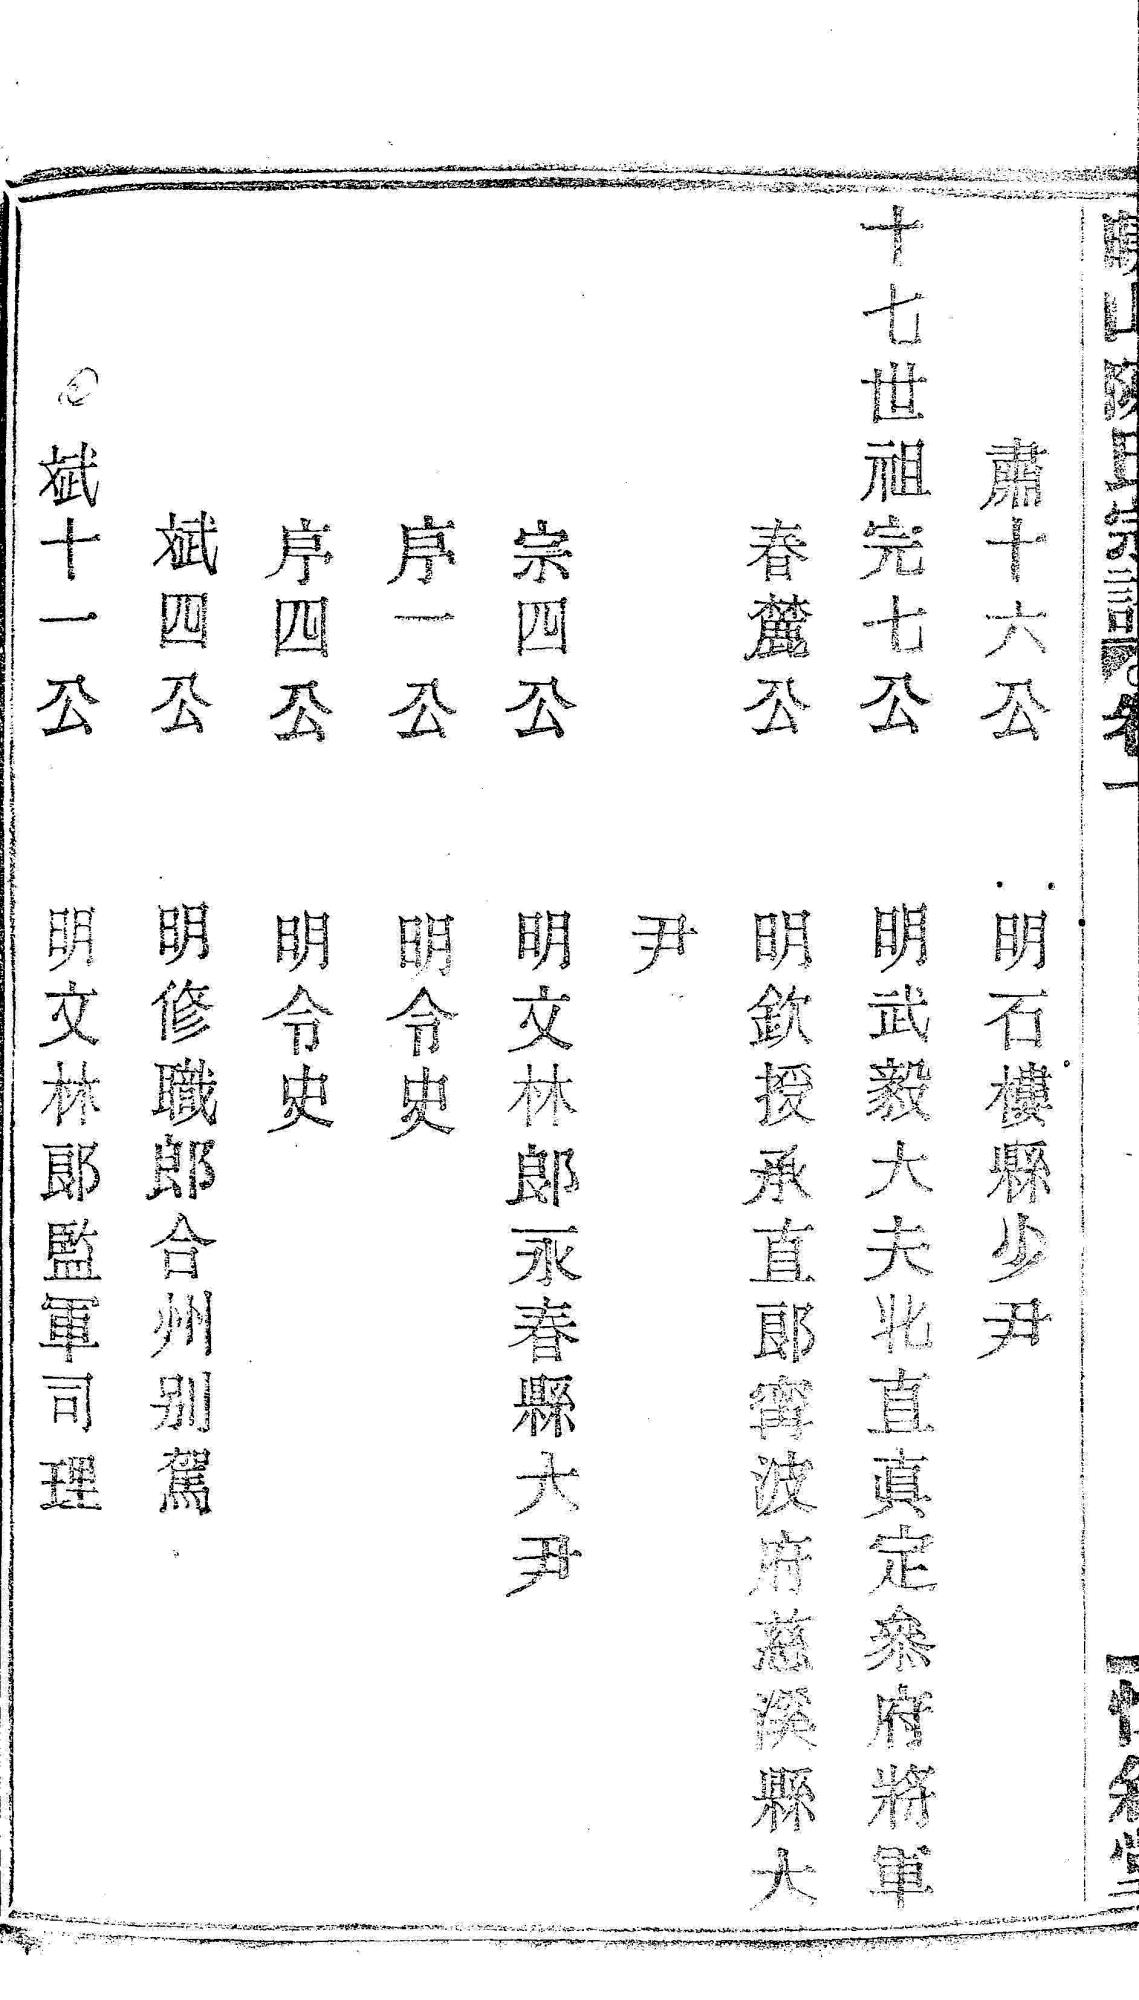 山陳氏宗譜 卷一
肅十六公 明石樓縣少尹
十七世祖完七公 明武毅大夫北直真定叅府將軍
春麓公 明欽授承直郞寗波府慈溪縣大
尹
宗四公 明文林郞永春縣大尹
序一公 明令史
序四公 明令史
斌四公 明修職郞合州别駕
斌十一公 明文林郞監軍司理